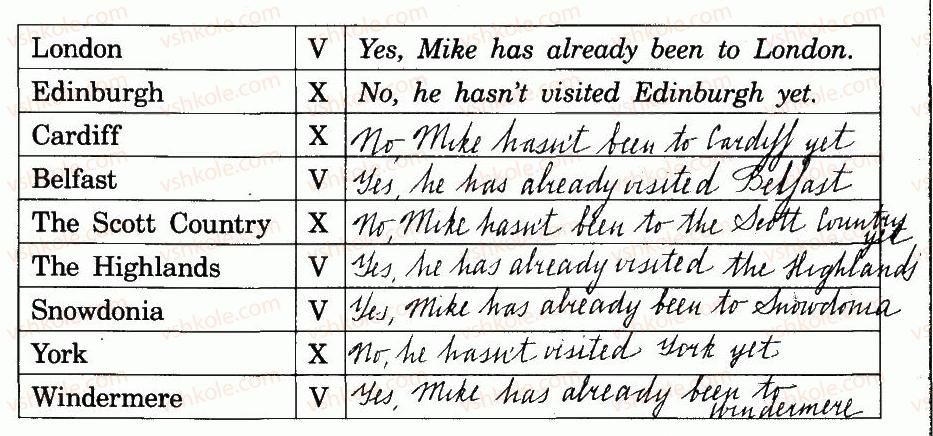 London V Yes, Mike has already been to London.
Edinburgh X No, he hasn't visited Edinburgh yet.
Cardiff X No, Mike hasn't been to Cardiff yet
Belfast V Yes, he has already visited Belfast
The Scott Country X No, Mike hasn't been to the Scott Country
yet
The Highlands V Yes, he has already visited the Highlands
Snowdonia V Yes, Mike has already been to Snowdonia
York X No, he hasn't visited York yet
Windermere V Yes, Mike has already been to
Windermere
vshkole.com